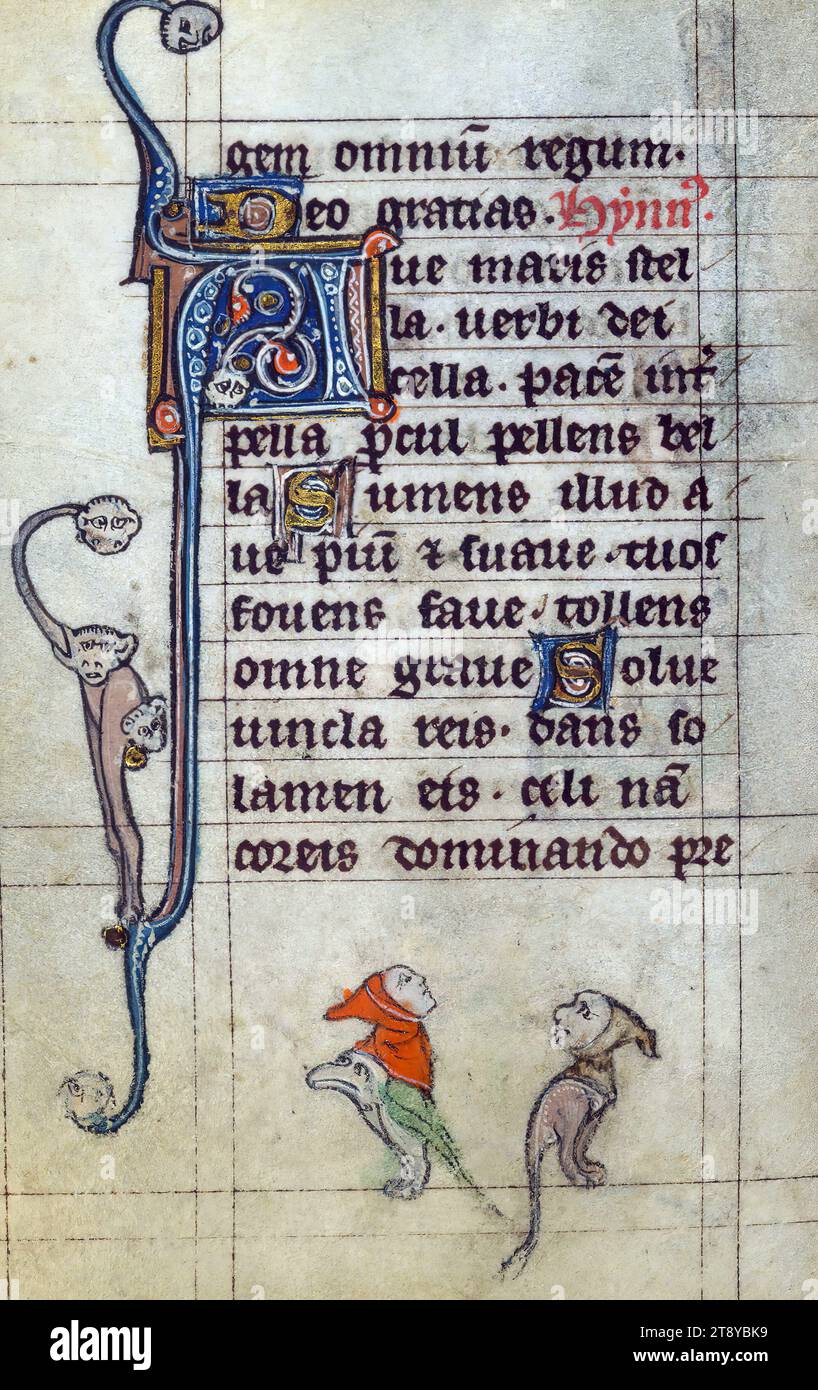 gem omniū regum.
Deo gratias. Hẏnn⁹.
Aue maris stel
la. uerbi dei
cella. pacē int᷑
pella ꝓcul pellens bel
la Sumens illud a
ue piū ⁊ suaue. tuos
fouens faue. tollens
omne graue Solue
uincla reis. dans so
lamen eis. celi nā
coreis dominando pre
alamy
alamy
alamy
alamy
a
a
a
a
alamy
Image ID: 2T8YBK9
www.alamy.com